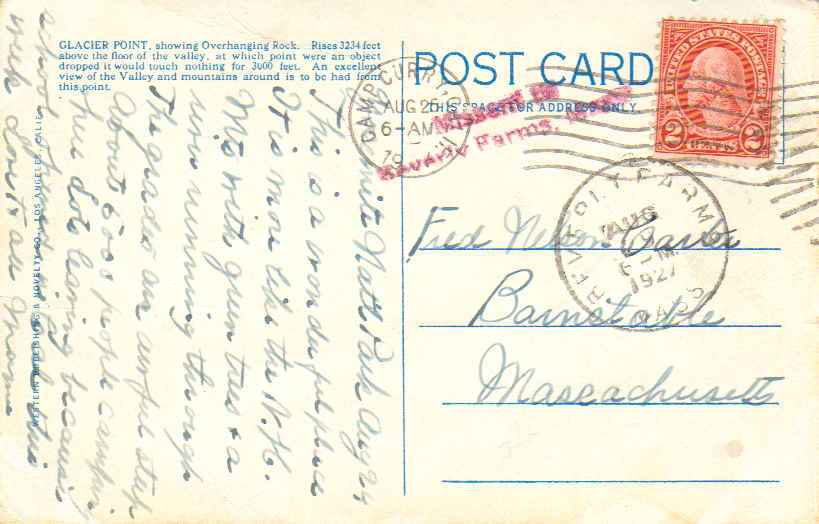 GLACIER POINT, showing Overhanging Rock. Rises 3234 feet
above the floor of the valley, at which point were an object
dropped it would touch nothing for 3000 feet. An excellent
view of the Valley and mountains around is to be had from
this point.
POST CARD
THIS SPACE FOR ADDRESS ONLY
UNITED STATES POSTAGE
2 CENTS 2
CAMP CURRY
AUG 25
6-AM
Missent to
Beverly Farms,
BEVERLY FARMS
AUG
1927
MASS
Fred Nelson
Barnstable
Massachusetts
WESTERN PUBLISHING & NOVELTY CO., LOS ANGELES, CALIF.
Nat'l Park Aug 24
This is a wonderful place
It is more like the N.H.
Mts with green trees & a
running through
The grades are awful steep
About 6000 people camping
here. Lots leaving because
school
week don't all Mama